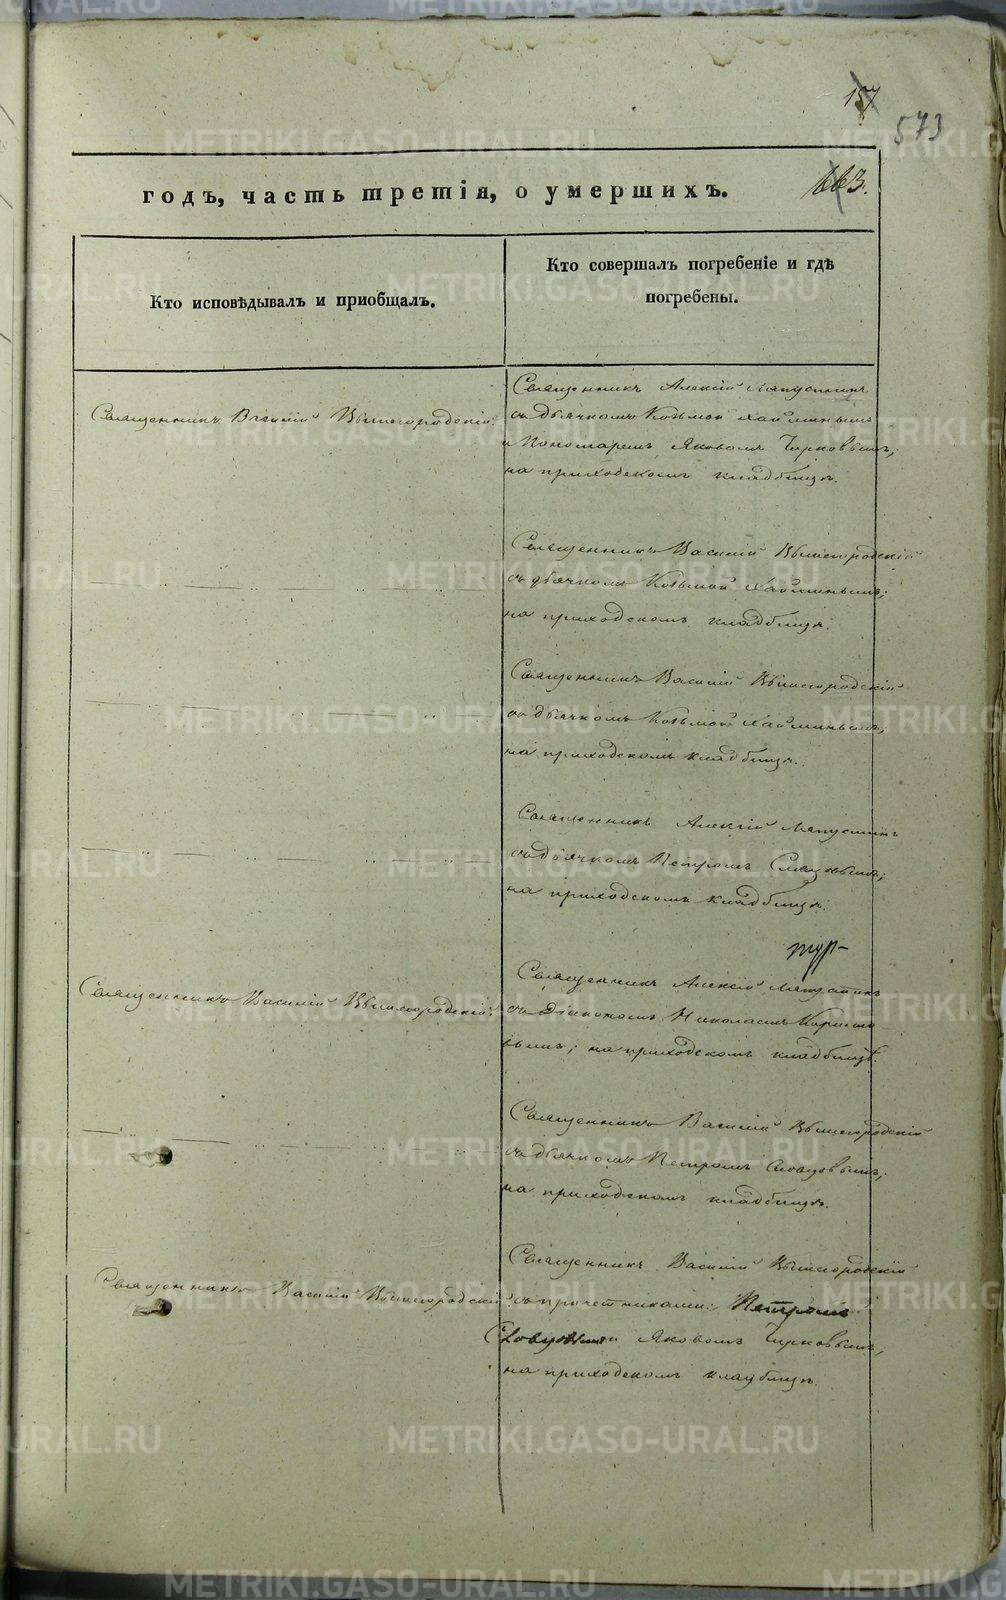 157
573
годъ, часть третія, о умершихъ.
663.
Кто исповѣдывалъ и приобщалъ.
Кто совершалъ погребеніе и гдѣ
погребены.
Священникъ Василій Вышегородскій.
Священникъ Алексій Ляпустинъ
съ дьячкомъ Козьмой Хайминымъ
и Пономаремъ Яковомъ Чирковымъ;
на приходскомъ кладбищѣ.
Священникъ Василій Вышегородскій
съ дьячкомъ Козьмой Хайминымъ;
на приходскомъ кладбищѣ.
Священникъ Василій Вышегородскій
со дьячкомъ Козьмой Хайминымъ;
на приходскомъ кладбищѣ.
Священникъ Алексій Ляпустинъ
съ дьячкомъ Петромъ
на приходскомъ кладбищѣ.
Священникъ Василій Вышегородскій.
Священникъ Алексій Ляпустинъ
съ Діакономъ Николаемъ
вымъ; на приходскомъ кладбищѣ.
Священникъ Василій Вышегородскій
съ дьячкомъ Петромъ Словцовымъ;
на приходскомъ кладбищѣ.
Священникъ Василій Вышегородскій
Священникъ Василій Вышегородскій
съ причетниками: Петромъ
Словцовым и Яковомъ Чирковымъ;
на приходскомъ кладбищѣ.
METRIKI.GASO-URAL.RU